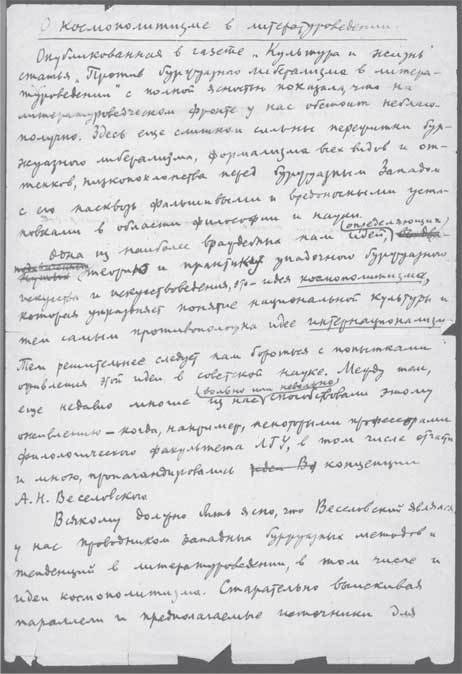 О космополитизме в литературоведении.
Опубликованная в газете „Культура и жизнь"
статья „Против буржуазного либерализма в литера-
туроведении" с полной ясностью показала, что на
литературоведческом фронте у нас обстоит неблаго-
получно. Здесь еще слишком сильны пережитки бур-
жуазного либерализма, формализма всех видов и от-
тенков, низкопоклонства перед буржуазным Западом
с его насквозь фальшивыми и вредоносными уста-
новками в области философии и науки.
(определяющих)
Одна из наиболее враждебных нам идей,
теорию и практику упадочного буржуазного
искусства и искусствоведения, это – идея космополитизма,
которая упраздняет понятие национальной культуры и
тем самым противоположна идее интернационализма.
Тем решительнее следует нам бороться с попытками
оживления этой идеи в советской науке. Между тем,
(вольно или невольно)
еще недавно многие из нас способствовали этому
оживлению – когда, например, некоторыми профессорами
филологического факультета ЛГУ, в том числе отчасти
и мною, пропагандировались идеи В концепции
А. Н. Веселовского.
Всякому должно быть ясно, что Веселовский являлся
у нас проводником западных буржуазных методов и
тенденций в литературоведении, в том числе и
идеи космополитизма. Старательно выискивая
параллели и предполагаемые источники для